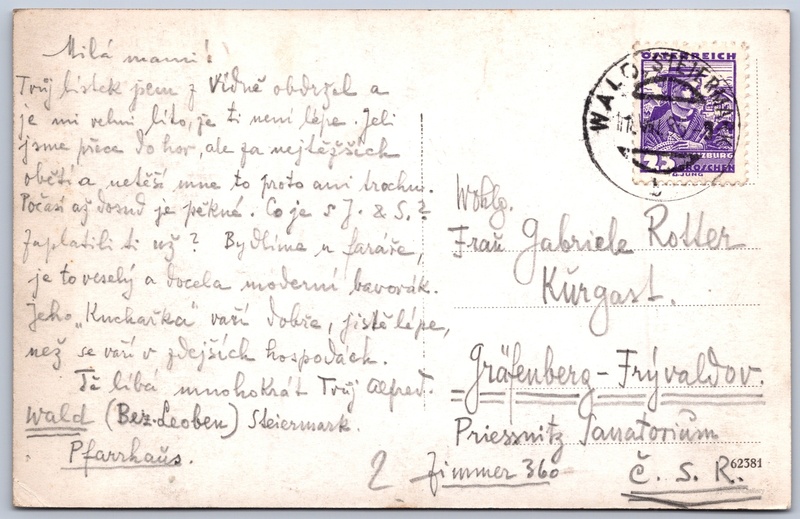 Milá mami!
Tvůj lístek jsem z Vídně obdržel a
je mi velmi líto, že ti není lépe. Jeli
jsme přece do hor, ale za nejtěžších
obětí a netěší mne to proto ani trochu.
Počasí až dosud je pěkné. Co je s J. & S.?
Zaplatili ti už? Bydlíme u faráře,
je to veselý a docela moderní bavorák.
Jeho „Kuchařka" vaří dobře, jistě lépe,
než se vaří v zdejších hospodách.
Tě líbá mnohokrát Tvůj Alfred.
Wald (Bez. Leoben) Steiermark.
Pfarrhaus.
ÖSTERREICH
WALD STEIERMARK
SALZBURG
25 GROSCHEN
b
Wohlg.
Frau Gabriele Rotter
Kurgast.
Gräfenberg-Frývaldov.
Priessnitz Sanatorium
Zimmer 360
Č. S. R.
62381
2